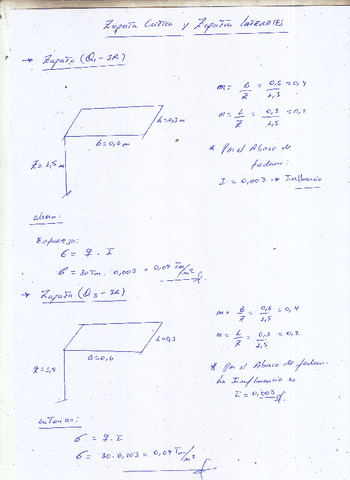 Zapata Crítica y Zapatas Laterales
→ Zapata (Q1-3R)
L=0,3 m
B=0,6 m
Z=1,5 m
m= B/Z = 0,6/1,5 = 0,4
n= L/Z = 0,3/1,5 = 0,2
* Por el Abaco de
fadum:
I = 0,003 → Influencia
ahora:
Esfuerzo:
σ = q . I
σ = 30 Tm . 0,003 = 0,09 Tm/m2
→ Zapata (Q3-3R)
L=0,3
B=0,6
Z=1,5
m= B/Z = 0,6/1,5 = 0,4
n= L/Z = 0,3/1,5 = 0,2
* Por el Abaco de fadum
la Influencia es
I = 0,003
entonces:
σ = q . I
σ = 30 . 0,003 = 0,09 Tm/m2